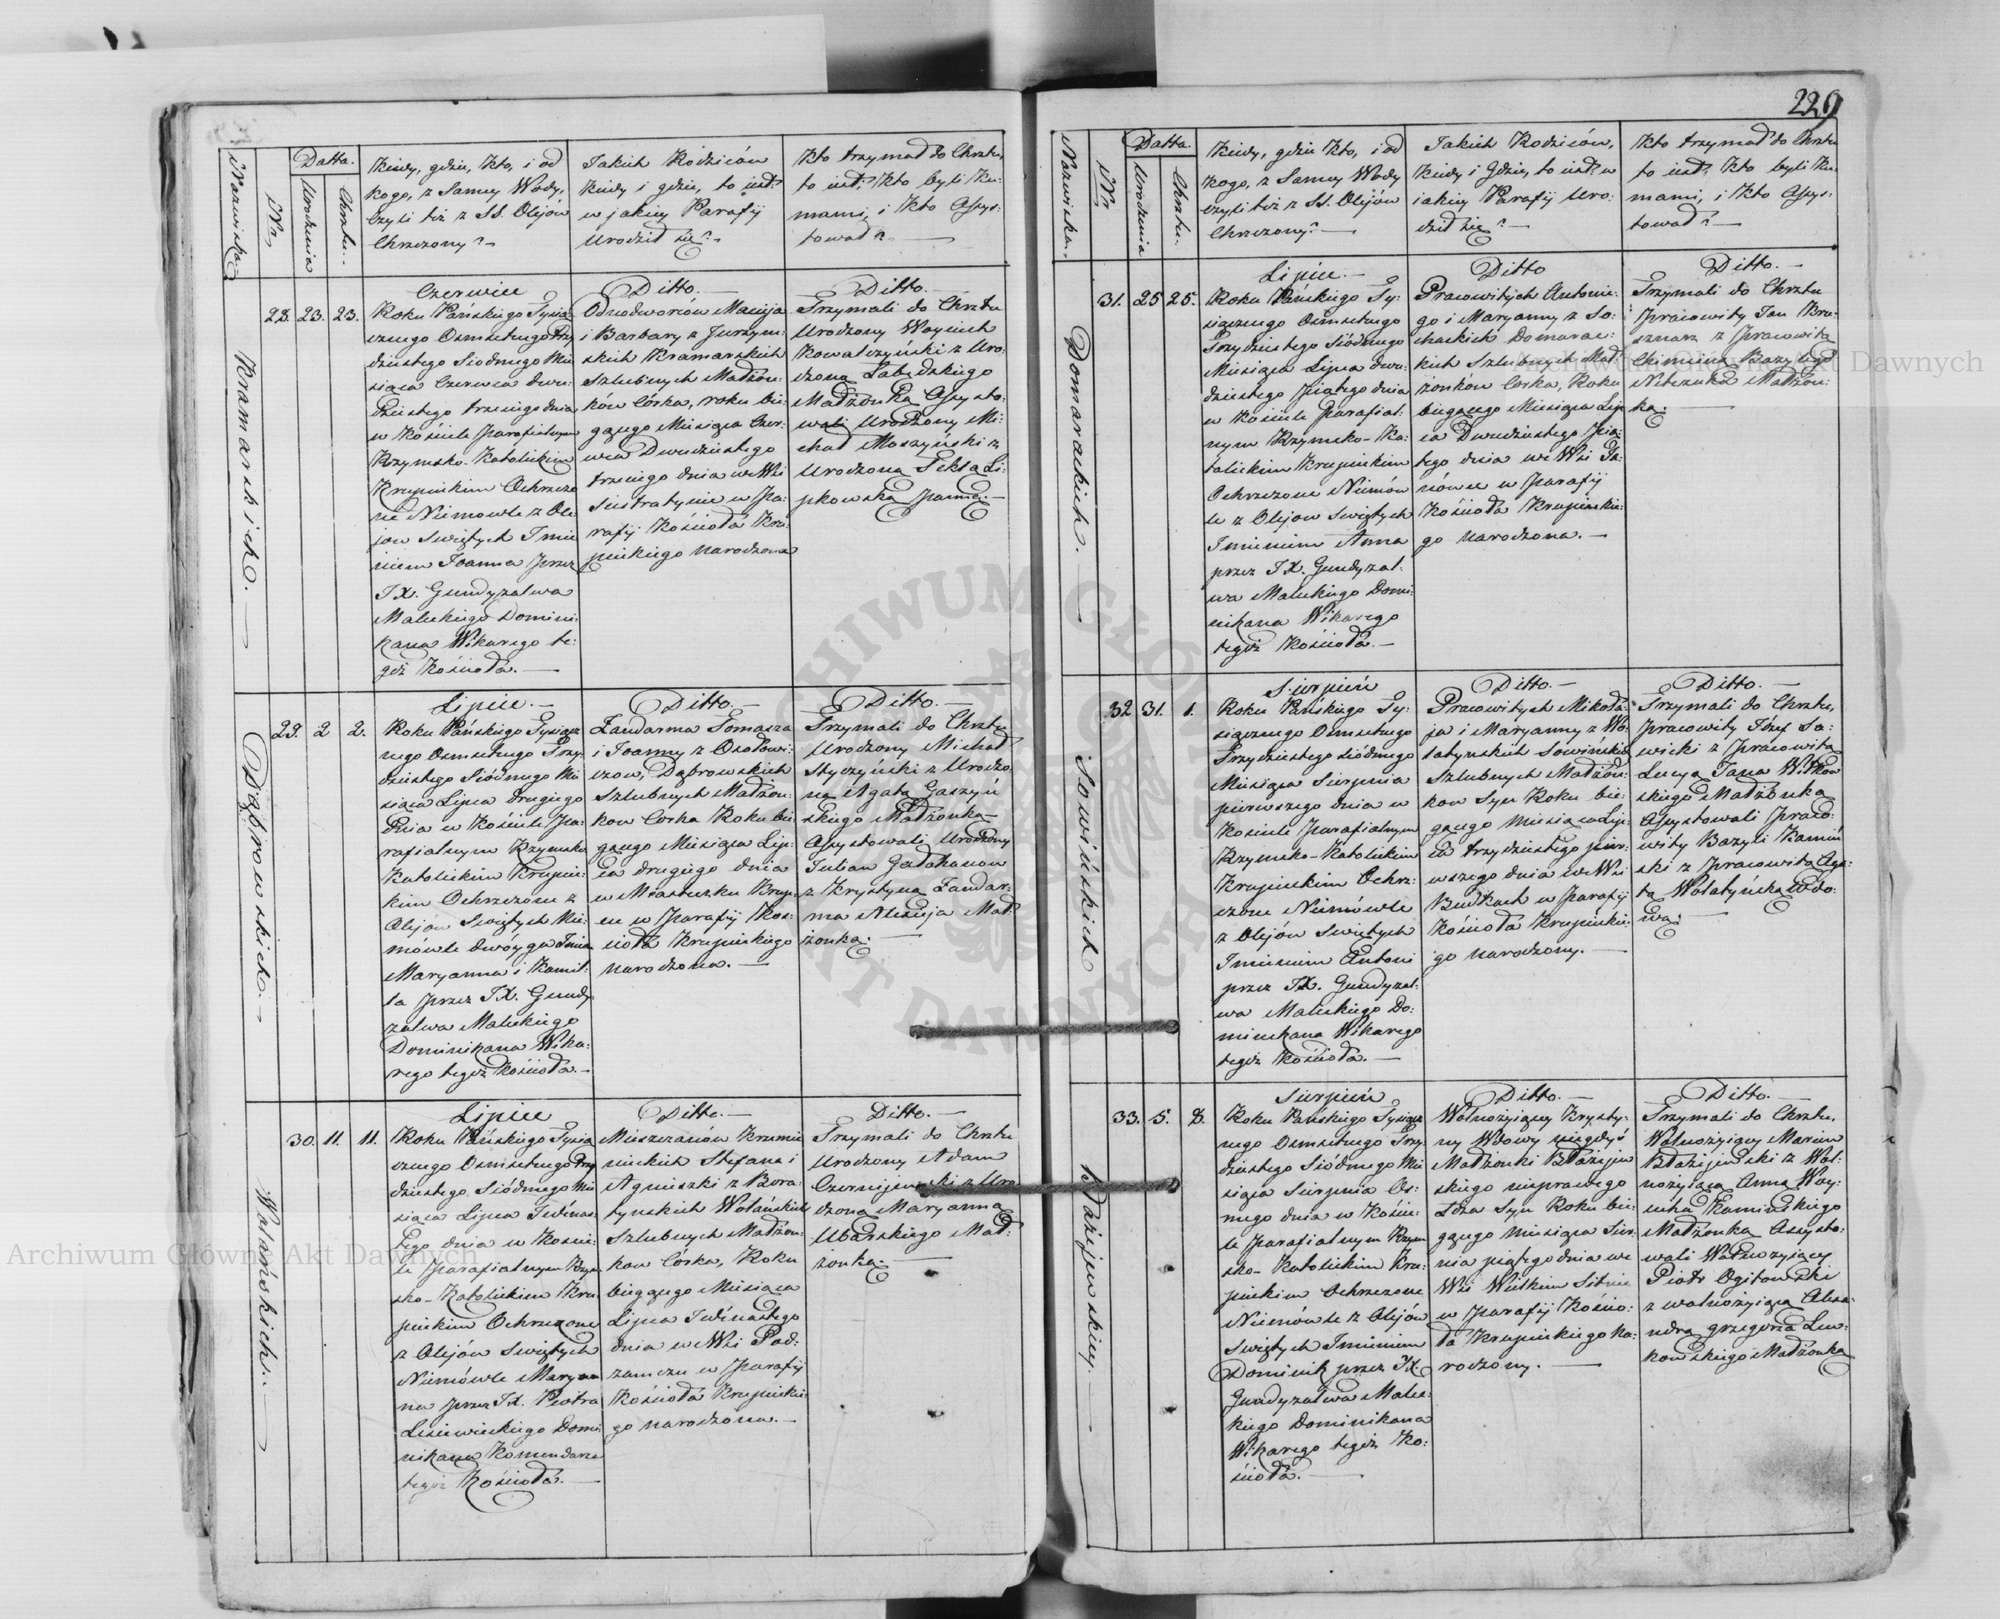 229
Nazwiska.
Nr.
Datta.
Urodzenia
Chrztu.
Kiedy, gdzie, Kto, i od
kogo, z Samey Wody,
czyli też z SS. Olejów
Chrzczony?
Jakich Rodziców
Kiedy i gdzie, to iest?
w jakiey Parafij
urodził się?
Kto trzymał do Chrztu,
to iest? Kto byli Ku-
mami, i Kto Assys-
tował?
Kramarskich.
28. 23. 23.
Czerwiec
Roku Pańskiego Tysią
cznego Osmsetnego Trzy
dziestego Siódmego Mie
siąca Czerwca dwu-
dziestego trzeciego dnia
w Kościele Parafialnym
Rzymsko-Katolickim
Krupieckim Ochrzczo
ne Niemowle z Ole
jow Swiętych Imie
niem Joanna przez
JX. Gundyzalwa
Maleckiego Domini:
kana Wikarego te:
goż Kościoła.
Ditto.
Odnodworców Macieja
i Barbary z Jurzym-
skich Kramarskich
Szlubnych Małżon-
ków Córka, roku bie:
gącego Miesiąca Czer-
wca Dwudziestego
trzeciego dnia we Wsi
Siestratynie w Pa-
rafij Kościoła Kru-
pieckiego narodzona
Ditto.
Trzymali do Chrztu
Urodzony Woyciech
Kowalczyński z Uro-
dzoną Łabędzkiego
Małżonką Assysto:
wali Urodzony Mi-
chał Moszyński z
Urodzoną Teklą Li-
pkowską Panną.
Dąbrowskich.
29. 2 2.
Lipiec.
Roku Pańskiego Tysiącz
nego Osmsetnego Trzy
dziestego Siódmego Mie
siąca Lipca drugiego
Dnia w Kościele Pa-
rafialnym Rzymsko
Katolickim Krupiec-
kim Ochrzczone z
Olejów Swiętych Nie-
mówle dwoyga Imion
Maryanna i Kamil-
la przez JX. Gundy
zalwa Maleckiego
Dominikana Wika:
rego tegoż Kościoła.
Ditto.
Żandarma Tomasza
i Joanny z Osołowi-
czow, Dąbrowskich
Szlubnych Małżon-
kow Corka Roku bie
gącego Miesiąca Lip-
ca drugiego dnia
w Miasteczku Krup-
cu w Parafij Koś-
cioła Krupieckiego
narodzona.
Ditto.
Trzymali do Chrztu
Urodzony Michał
Styczyński z Urodzo-
ną Agatą Gaszyń
skiego Małżonką
Assystowali Urodzony
Julian
z Krystyną Żandar-
ma Małż
żonką.
Wolańskich.
30. 11. 11.
Lipiec
Roku Pańskiego Tysią
cznego Osmsetnego Trzy
dziestego Siódmego Mie
siąca Lipca Jedenas-
tego dnia w Koście-
le Parafialnym Rzym
sko-Katolickim Kru
pieckim Ochrzczone
z Olejów Swiętych
Niemówle Maryan
na przez JX. Piotra
Domi
nikana Komendarza
tegoż Kościoła.
Ditto.
Mieszczanów Krzemie
nieckich Stefana i
Agnieszki z Bora-
tynskich Wolańskich
Szlubnych Małżon-
kow Córka, Roku
biegącego Miesiąca
Lipca Jedénastego
dnia we Wsi Pod-
zamczu w Parafij
Kościoła Krupieckie
go narodzona.
Ditto.
Trzymali do Chrztu
Urodzony Adam
Czerniejewski z Uro
dzoną Maryanną
Ubarskiego Mał-
żonką.
Nazwiska.
Nr.
Datta.
Urodzenia
Chrztu.
Kiedy, gdzie Kto, i od
kogo, z Samey Wody
czyli też z SS. Olejów
Chrzczony?
Jakich Rodziców,
Kiedy i Gdzie, to iest? w
iakiey Parafij Uro-
dził się?
Kto trzymał do Chrztu
to iest? Kto byli Ku-
mami, i Kto Assys-
tował?
Domarackich.
31. 25 25.
Lipiec.
Roku Pańskiego Ty-
siącznego Osmsetnego
Trzydziestego Siódmego
Miesiąca Lipca dwu-
dziestego Piątego dnia
w Kościele Parafial-
nym Rzymsko-Ka-
tolickim Krupieckim
Ochrzczone Niemów
le z Olejow Swiętych
Imieniem Anna
przez JX. Gundyzal-
wa Maleckiego Domi-
nikana Wikarego
tegoż Kościoła.
Ditto
Pracowitych Antonie-
go i Maryanny z So-
chackich Domarac-
kich Szlubnych Mał-
żonków Corka, Roku
biegącego Miesiąca Lip
ca Dwudziestego Pią-
tego dnia we Wsi Sa-
nówce w Parafij
Kościoła Krupieckie-
go narodzona.
Ditto.
Trzymali do Chrztu
Pracowity Jan Kra-
sznarz z Pracowitą
Eliminią Bazylego
Małżon-
ką.
Sowińskich
32 31. 1.
Sierpień
Roku Pańskiego Ty-
siącznego Osmsetnego
Trzydziestego siódmego
Miesiąca Sierpnia
pierwszego dnia w
Kościele Parafialnym
Rzymsko-Katolickim
Krupieckim Ochrz-
czone Niemówle
z Olejów Swiętych
Imieniem Antoni
przez JX. Gundyzal-
wa Maleckiego Do-
minikana Wikarego
tegoż Kościoła.
Ditto.
Pracowitych Mikoła-
ja i Maryanny z Wo-
łatynskich Sowińskich
Szlubnych Małżon-
kow Syn Roku bie-
gącego Miesiąca Lip-
ca trzydziestego pier-
wszego dnia we Wsi
Budkach w Parafij
Kościoła Krupieckie-
go narodzony.
Ditto.
Trzymali do Chrztu,
Pracowity Józef Sa-
wicki z Pracowitą
Lucyą Jana Witkow
skiego Małżonką
Assystowali Praco-
wity Bazyli Kamiń
ski z Pracowitą Aga-
tą Wołatyńską Wdo-
wą.
Błażejewskiey.
33. 5. 8.
Sierpień
Roku Pańskiego Tysiącz
nego Osmsetnego Trzy
dziestego Siódmego Mie
siąca Sierpnia Os-
mego dnia w Koście-
le Parafialnym Rzym
sko-Katolickim Kru-
pieckim Ochrzczone
Niemówle z Olejów
Swiętych Imieniem
Dominik przez JX.
Gundyzalwa Malec-
kiego Dominikana
Wikarego tegoż Ko-
ścioła.
Ditto.
Wolnożyiącey Krysty-
ny Wdowy niegdyś
Małżonki Błażejew
skiego nieprawego
Łoża Syn Roku bie-
gącego Miesiąca Sier-
pnia piątego dnia we
Wsi Wielkim Sitnie
w Parafij Kościo-
ła Krupieckiego na-
rodzony.
Ditto.
Trzymali do Chrztu,
Wolnożyiący Marcin
Błażejewski z Wol-
nożyiącą Anną Woy-
ciecha Kamińskiego
Małżonką Assysto-
wali Wolnożyiący
Piotr Ogitowski
z wolnożyiącą Alexa-
ndrą Grzegorza Lew-
kowskiego Małżonką
ARCHIWUM GŁÓWNE AKT DAWNYCH
Archiwum Główne Akt Dawnych
Archiwum Główne Akt Dawnych